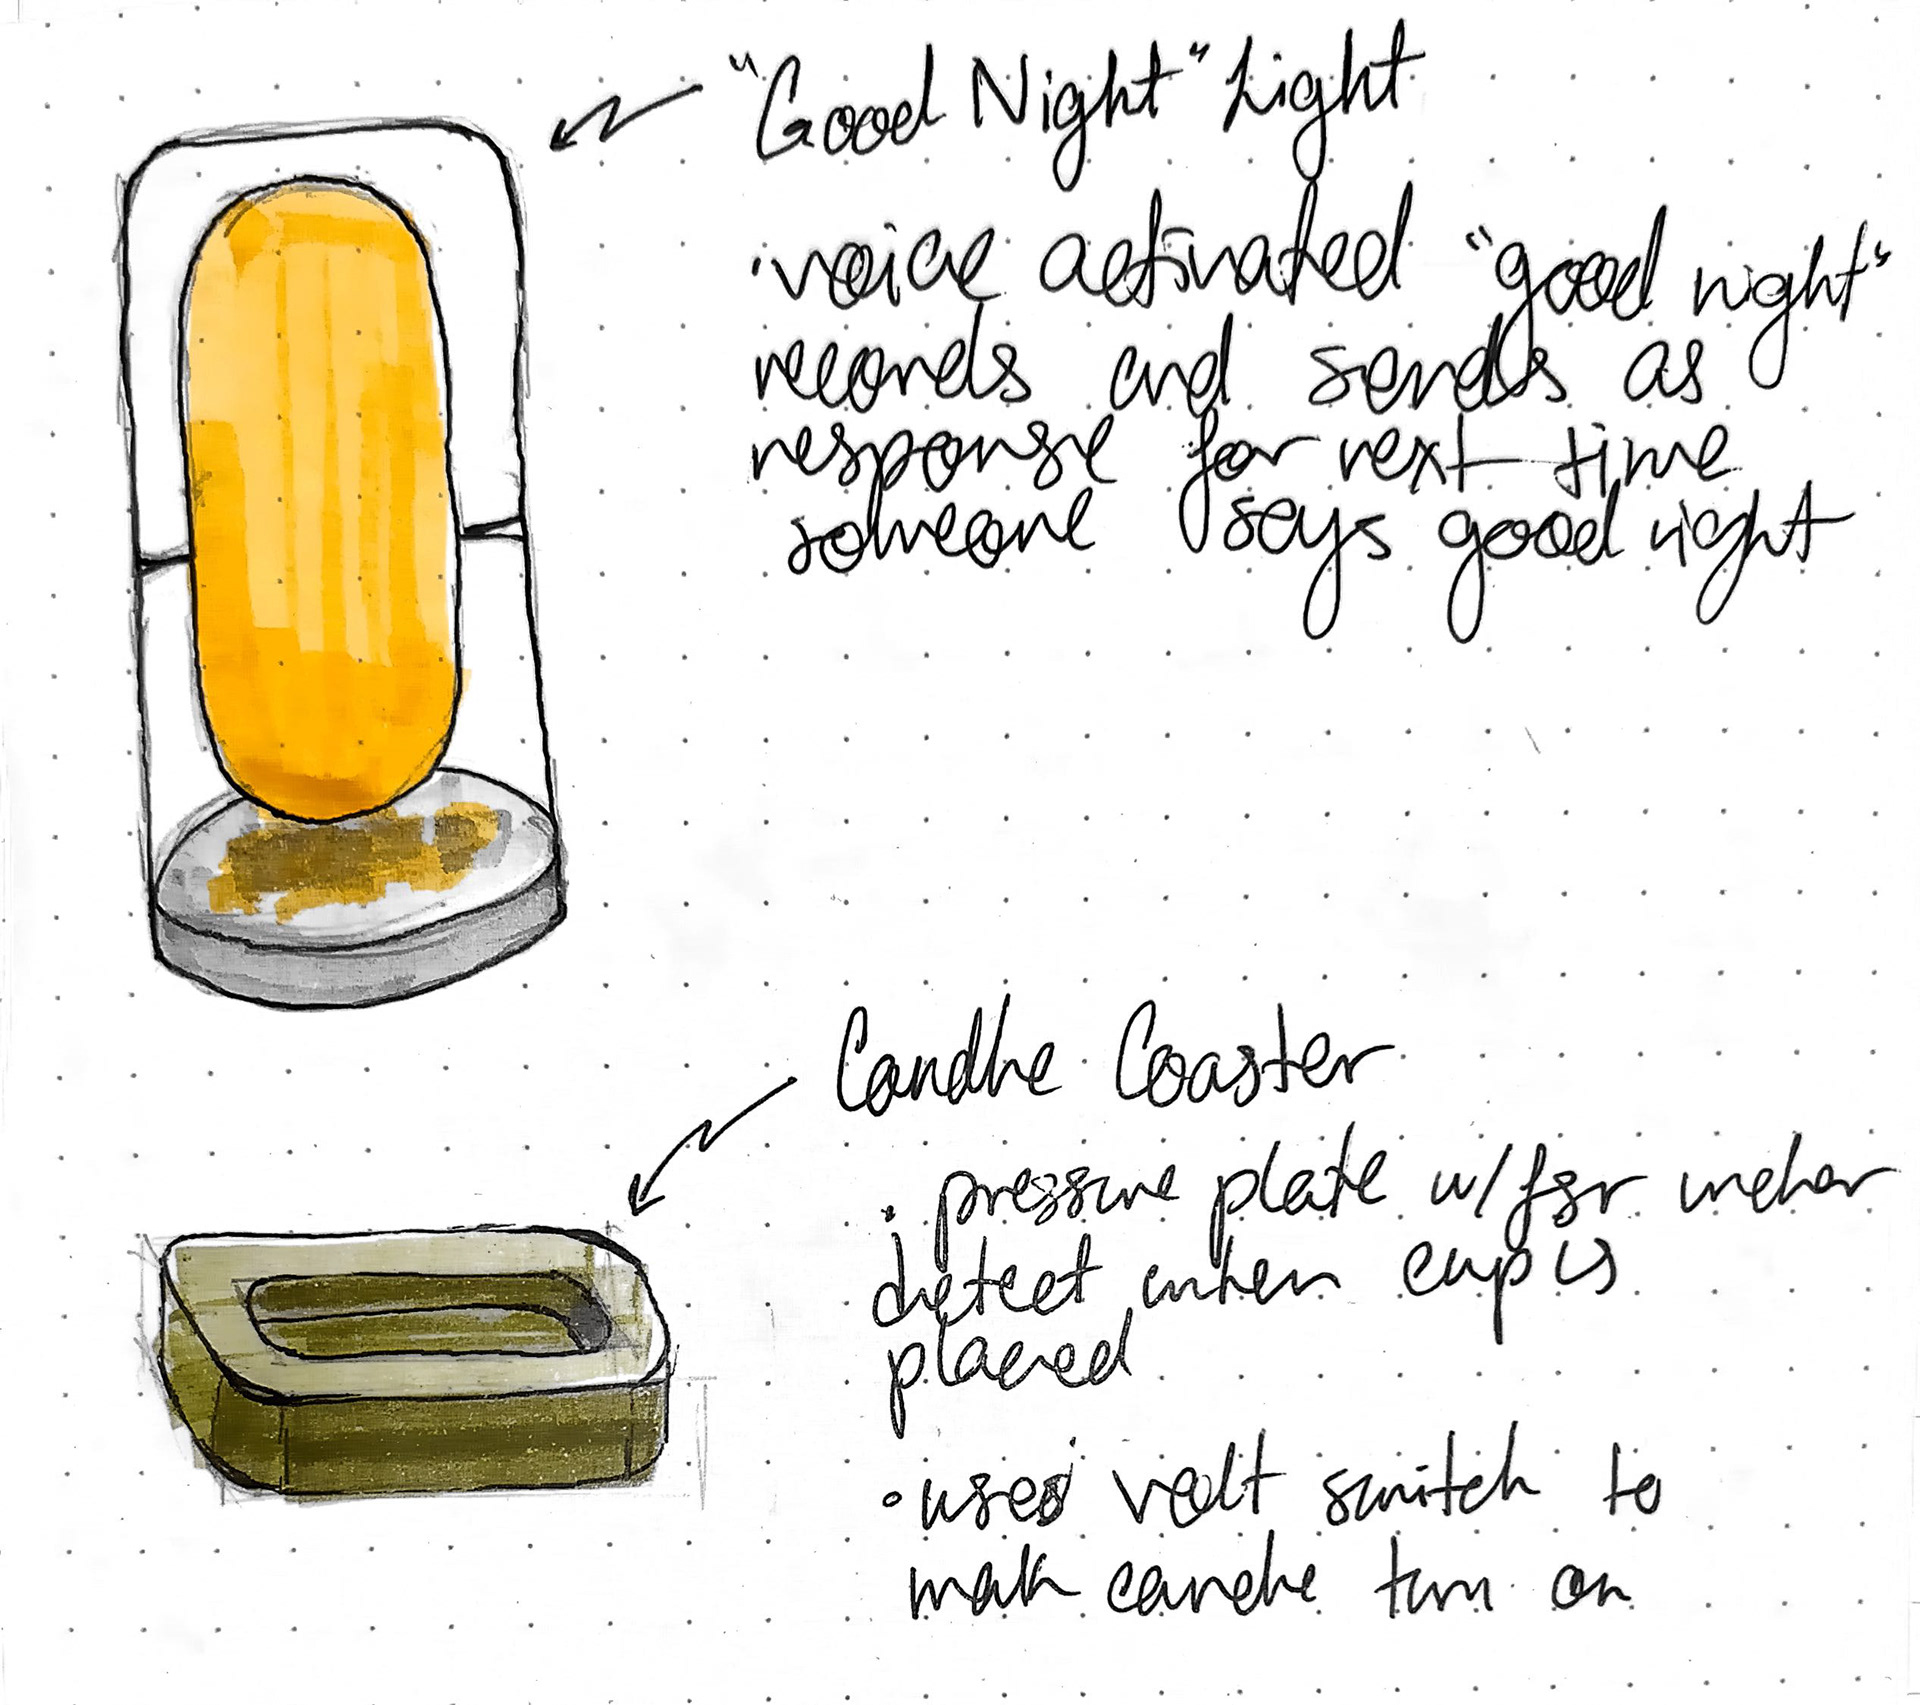 "Good Night" Light
·voice activated "good night"
records and sends as
response for next time
someone says good night
Candle Coaster
· pressure plate w/ fsr
detect when cup is
placed
·uses volt switch to
make candle turn on